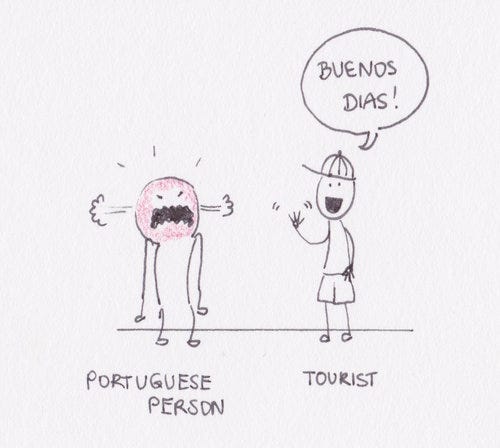 BUENOS
DIAS!
PORTUGUESE
PERSON
TOURIST